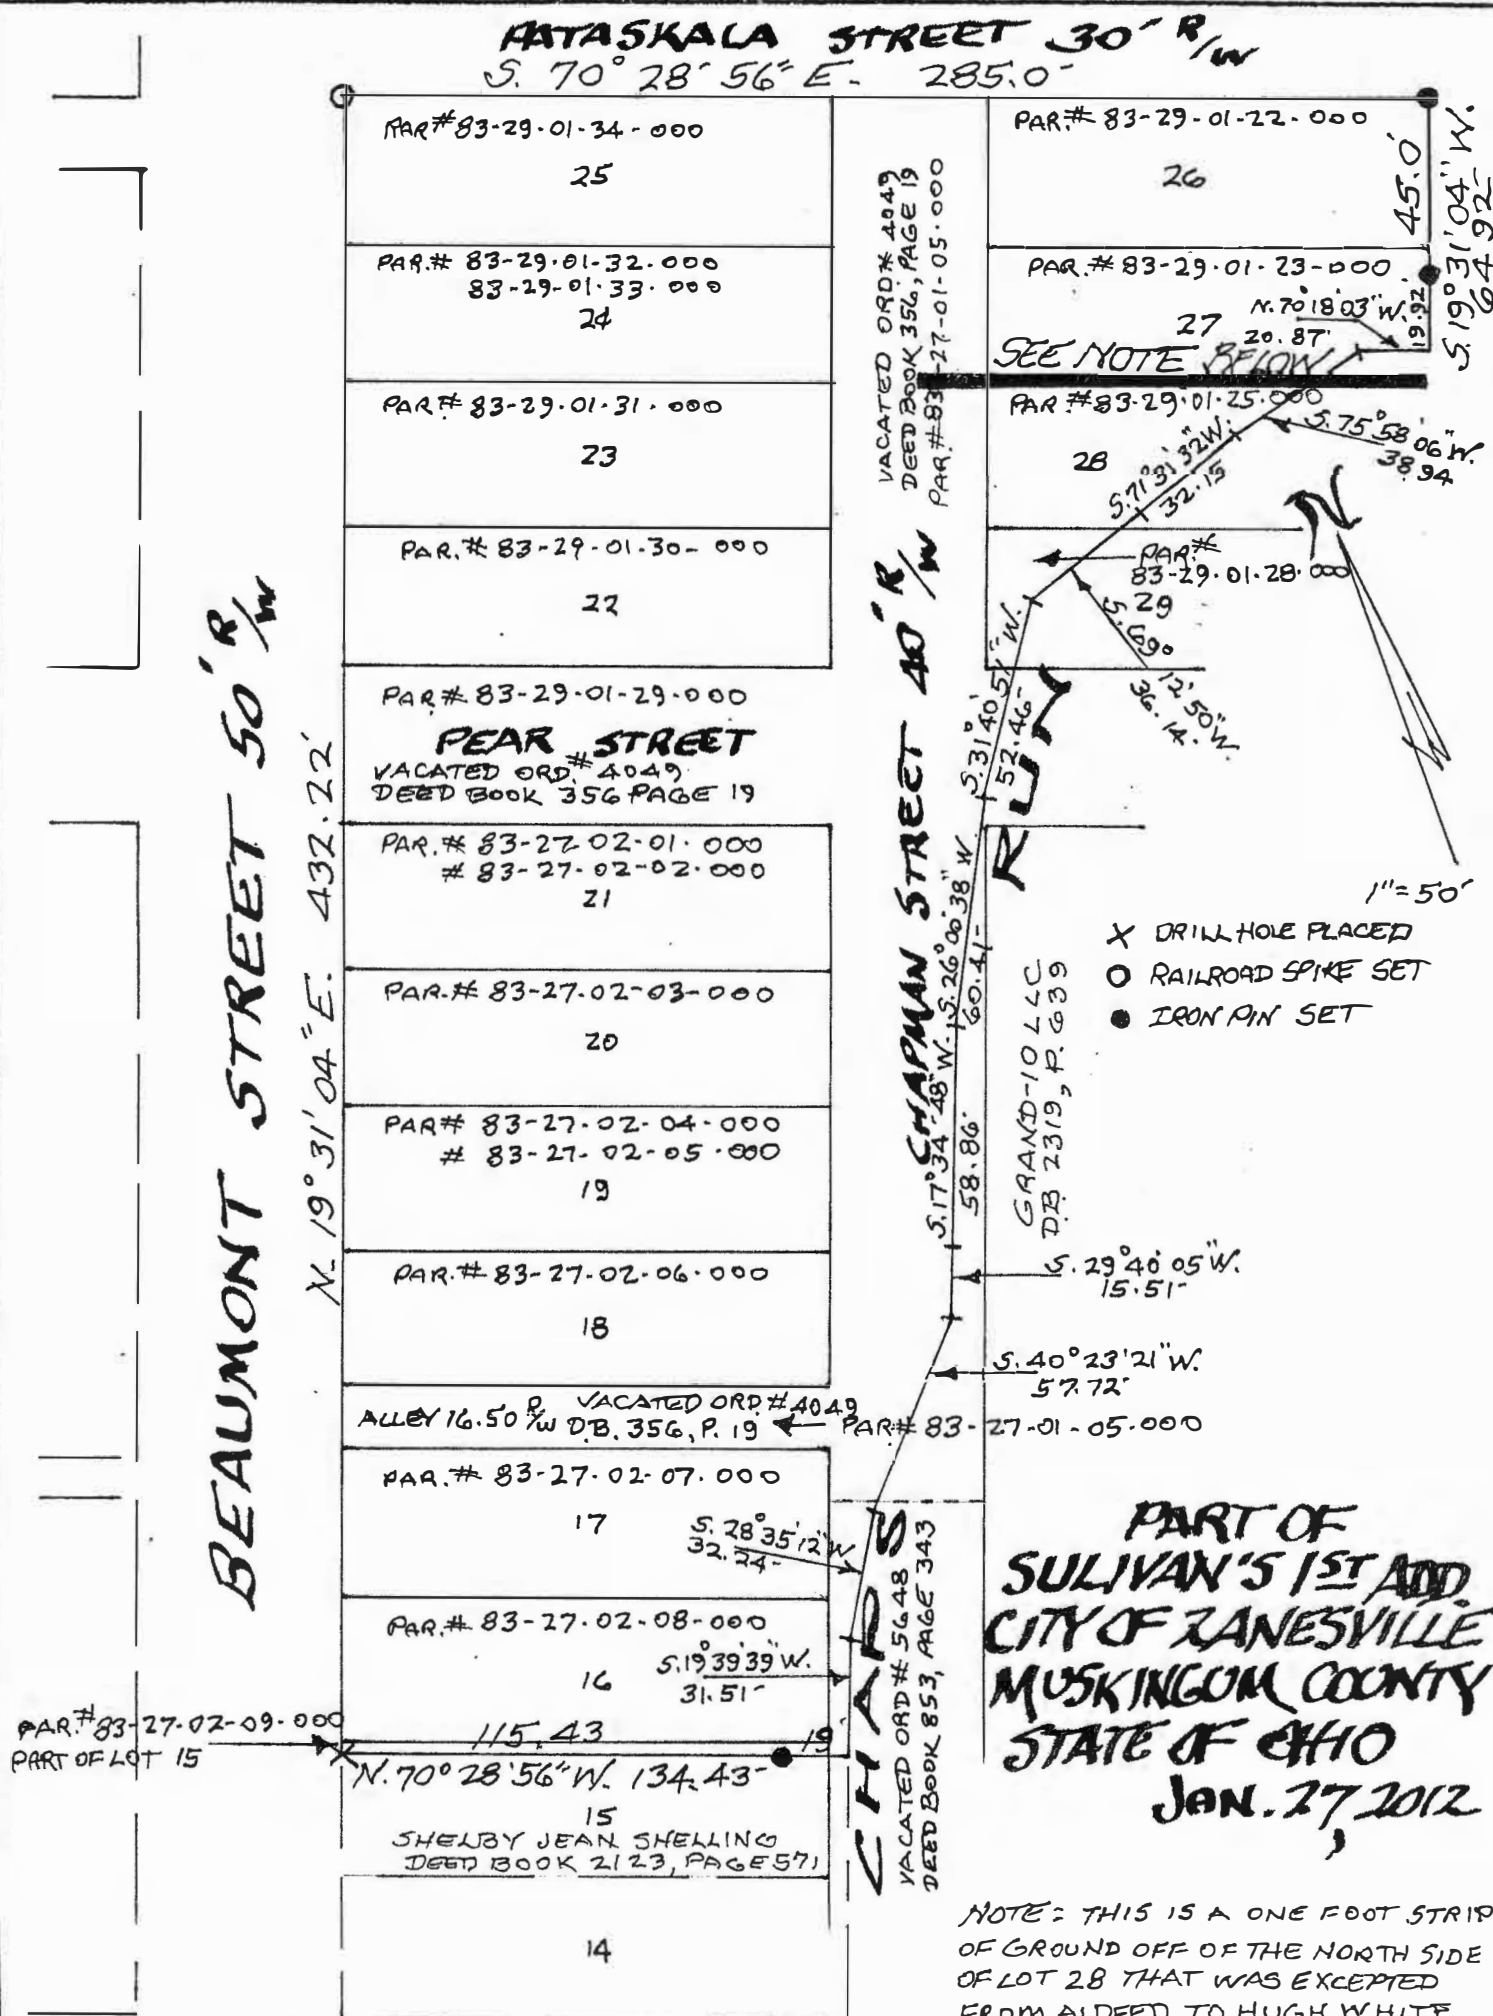 PATASKALA STREET 30' R/W
S. 70° 28' 56" E. 285.0'
PAR# 83-29-01-34-000
25
PAR.# 83-29-01-32-000
83-29-01-33-000
24
PAR# 83-29-01-31-000
23
PAR.# 83-29-01-30-000
22
PAR# 83-29-01-29-000
PEAR STREET
VACATED ORD.# 4049
DEED BOOK 356 PAGE 19
PAR.# 83-27-02-01-000
# 83-27-02-02-000
21
PAR.# 83-27-02-03-000
20
PAR# 83-27-02-04-000
# 83-27-02-05-000
19
PAR.# 83-27-02-06-000
18
ALLEY 16.50 R/W
VACATED ORD.# 4049
D.B. 356, P. 19
PAR# 83-27-01-05-000
PAR.# 83-27-02-07-000
17
S. 28° 35' 12" W
32.24'
PAR.# 83-27-02-08-000
16
S. 19° 39' 39" W.
31.51'
PAR.# 83-27-02-09-000
PART OF LOT 15
115.43
19'
N. 70° 28' 56" W. 134.43'
15
SHELBY JEAN SHELLING
DEED BOOK 2123, PAGE 571
14
BEAUMONT STREET 50' R/W
N. 19° 31' 04" E. 432.22'
VACATED ORD# 4049
DEED BOOK 356, PAGE 19
PAR.# 83-27-01-05-000
CHAPMAN STREET 40' R/W
CHAP S
VACATED ORD# 5648
DEED BOOK 853, PAGE 343
PAR.# 83-29-01-22-000
26
45.0'
S. 19° 31' 04" W.
64.92'
PAR.# 83-29-01-23-000
27
N. 70° 18' 03" W.
20.87'
19.92'
SEE NOTE BELOW
PAR.# 83-29-01-25-000
28
S. 75° 58' 06" W.
38.94
S. 71° 31' 32" W.
32.15
PAR.#
83-29-01-28-000
29
S. 69° 12' 50" W.
36.14'
S. 31° 40' 51" W.
52.46'
RUN
N
S. 26° 00' 38" W
60.41'
S. 17° 34' 48" W.
58.86'
GRAND-10 LLC
DB 2319, P. 639
1"=50'
X DRILL HOLE PLACED
O RAILROAD SPIKE SET
● IRON PIN SET
S. 29° 40' 05" W.
15.51'
S. 40° 23' 21" W.
57.72'
PART OF
SULIVAN'S 1ST ADD.
CITY OF ZANESVILLE
MUSKINGUM COUNTY
STATE OF OHIO
JAN. 27, 2012
NOTE: THIS IS A ONE FOOT STRIP
OF GROUND OFF OF THE NORTH SIDE
OF LOT 28 THAT WAS EXCEPTED
FROM A DEED TO HUGH WHITE